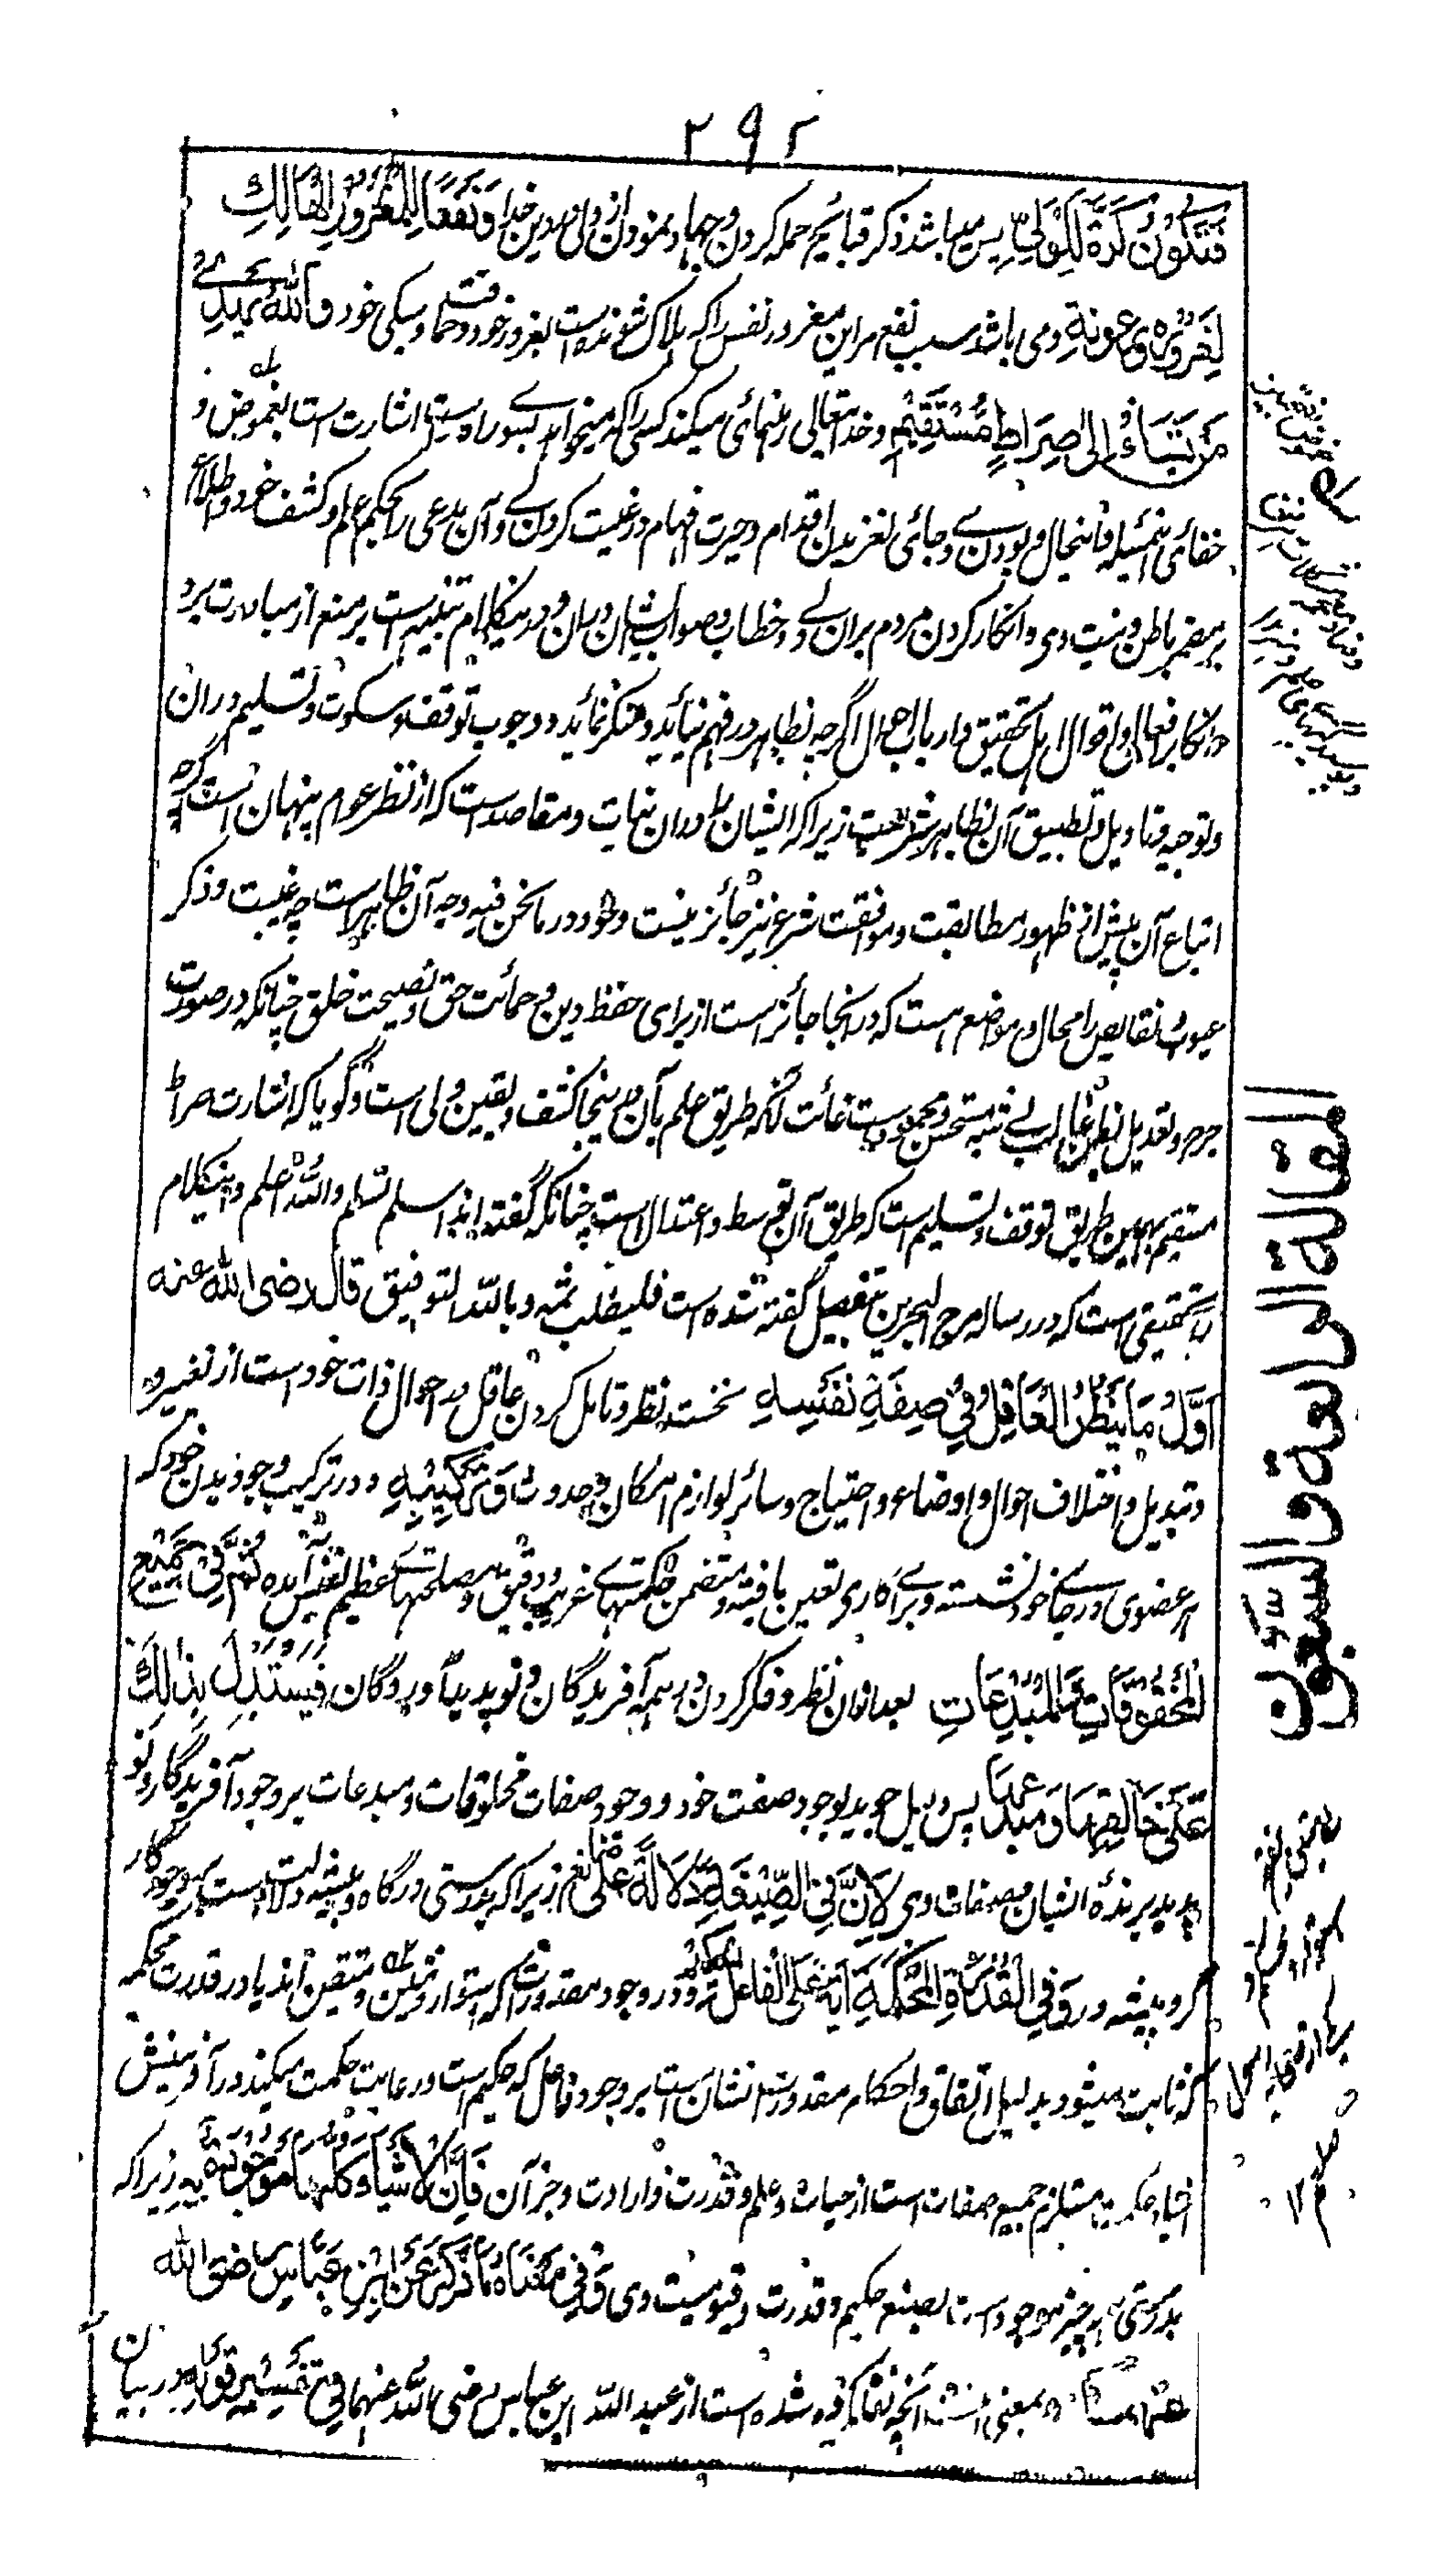 ۲۹۲
فتکون کرة للولی پس میباشد ذکر قبائح حمله کردن و جهاد نمودن از ولی در دین خدا و نفعا للمغرور الهالک
لغروره و رعونته و می باشد سبب نفع مر این مغرور نفس را که هلاک شونده است بغرور خود و حماقت و سبکی خود والله یهدی
من یشاء الی صراط مستقیم و خدا تعالی رهنمائی میکند کسی را که میخواهد بسوی راه راست اشارت است بغموض و
خفائی این مسئله و اینحال در بودن وی جائی لغزیدن اقدام و حیرت افهام در غیبت کردن ولی و آن مدعی را بحکم علم و کشف خود و اطلاع
بر مضمر باطن و نیت وی و انکار کردن مردم بران ولی و خطاب و صواب ایشان دران و درینکلام تنبیه است بر منع از مبادرت برد
و انکار افعال و اقوال اهل تحقیق و ارباب احوال اگرچه بظاهر در فهم نیاید و منکر نماید و وجوب توقف و سکوت و تسلیم دران
و توجیه و تاویل و تطبیق آن بظاهر شریعت زیرا که ایشان را دران نیات و مقاصد است که از نظر عوام پنهان است اگرچه
اتباع آن پیش از ظهور مطابقت و موافقت شرع نیز جائز نیست و خود در ما نحن فیه وجه آن ظاهر است چه غیبت و ذکر
عیوب و نقایص را محال و مواضع است که در انجا جائز است از برای حفظ دین و حمائت حق و نصیحت خلق چنانکه در صورت
جرح و تعدیل بظن غالب بی شبه مستحسن و محمود است غائت آنکه طریق علم بآن درینجا کشف و یقین ولی است و گویا که اشارت صراط
مستقیم بهمین طریق توقف و تسلیم است که طریق آن توسط و اعتدال است چنانکه گفته اند اسلم تسلم والله اعلم و اینکلام
را تحقیقی است که در رساله مرج البحرین بتفصیل گفته شده است فلیطلب ثمه و بالله التوفیق قال رضی الله عنه
اول ما ینظر العاقل فی صفة نفسه نخست نظر و تامل کردن عاقل در احوال ذات خود است از تغییر و
تبدیل و اختلاف احوال و اوضاع و احتیاج و سائر لوازم امکان و حدوث و ترکیبه و در ترکیب وجود بدن خود که
هر عضوی در جای خود نشسته و برای کاری تعین یافته و متضمن حکمتهای غریب و دقیق و مصلحتهای عظیم نفیس آمده ثم فی جمیع
المخلوقات والمبدعات بعد ازان نظر و فکر کردن در همه آفریدگان و نو پدید آوردگان فیستدل بذلک
علی خالقها و مبدعها پس دلیل جوید بوجود صفت خود و وجود صفات مخلوقات و مبدعات بر وجود آفریدگار و نو
پدید برنده ایشان و صفات وی لان فی الصنعة دلالة علی الصانع زیرا که بدرستی در کاه و پیشه دلالت است بر وجود کار
گر و پیشه ور و فی القدرة المحکمة آیة علی الفاعل الحکیم و در وجود مقدورات که استوار و متین و متقین اند یا در قدرت محکمه
که ثابت میشود بدلیل اتقان و احکام مقدورات نشان است بر وجود فاعل که حکیم است و رعایت حکمت میکند در آفرینش
اشیا و حکمت مستلزم جمیع صفات است از حیات و علم و قدرت و ارادت و جز آن فان الاشیاء کلها موجودة به زیرا که
بدرستی همه چیز موجود است بصنع حکیم و قدرت و قیومیت وی و فی معناه ما ذکر عن ابن عباس رضی الله
عنهما و بمعنی اینست آنچه نقل کرده شده است از عبد الله ابن عباس رضی الله عنهما فی تفسیر قوله در بیان
المقالة الرابعة والسبعون